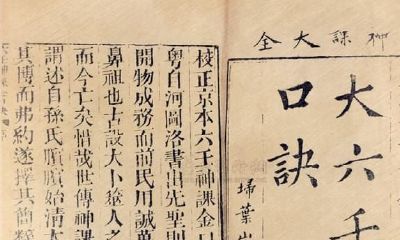 神課大全
大六壬
口訣
埽葉山
校正京本六壬神課金口
粵自河圖洛書出先聖則
開物成務而前民用誠萬
鼻祖也古設大人之
而今亡矣惜哉世傳神課
謂述自孫氏臏始清大
其博而弗約遂擇其簡